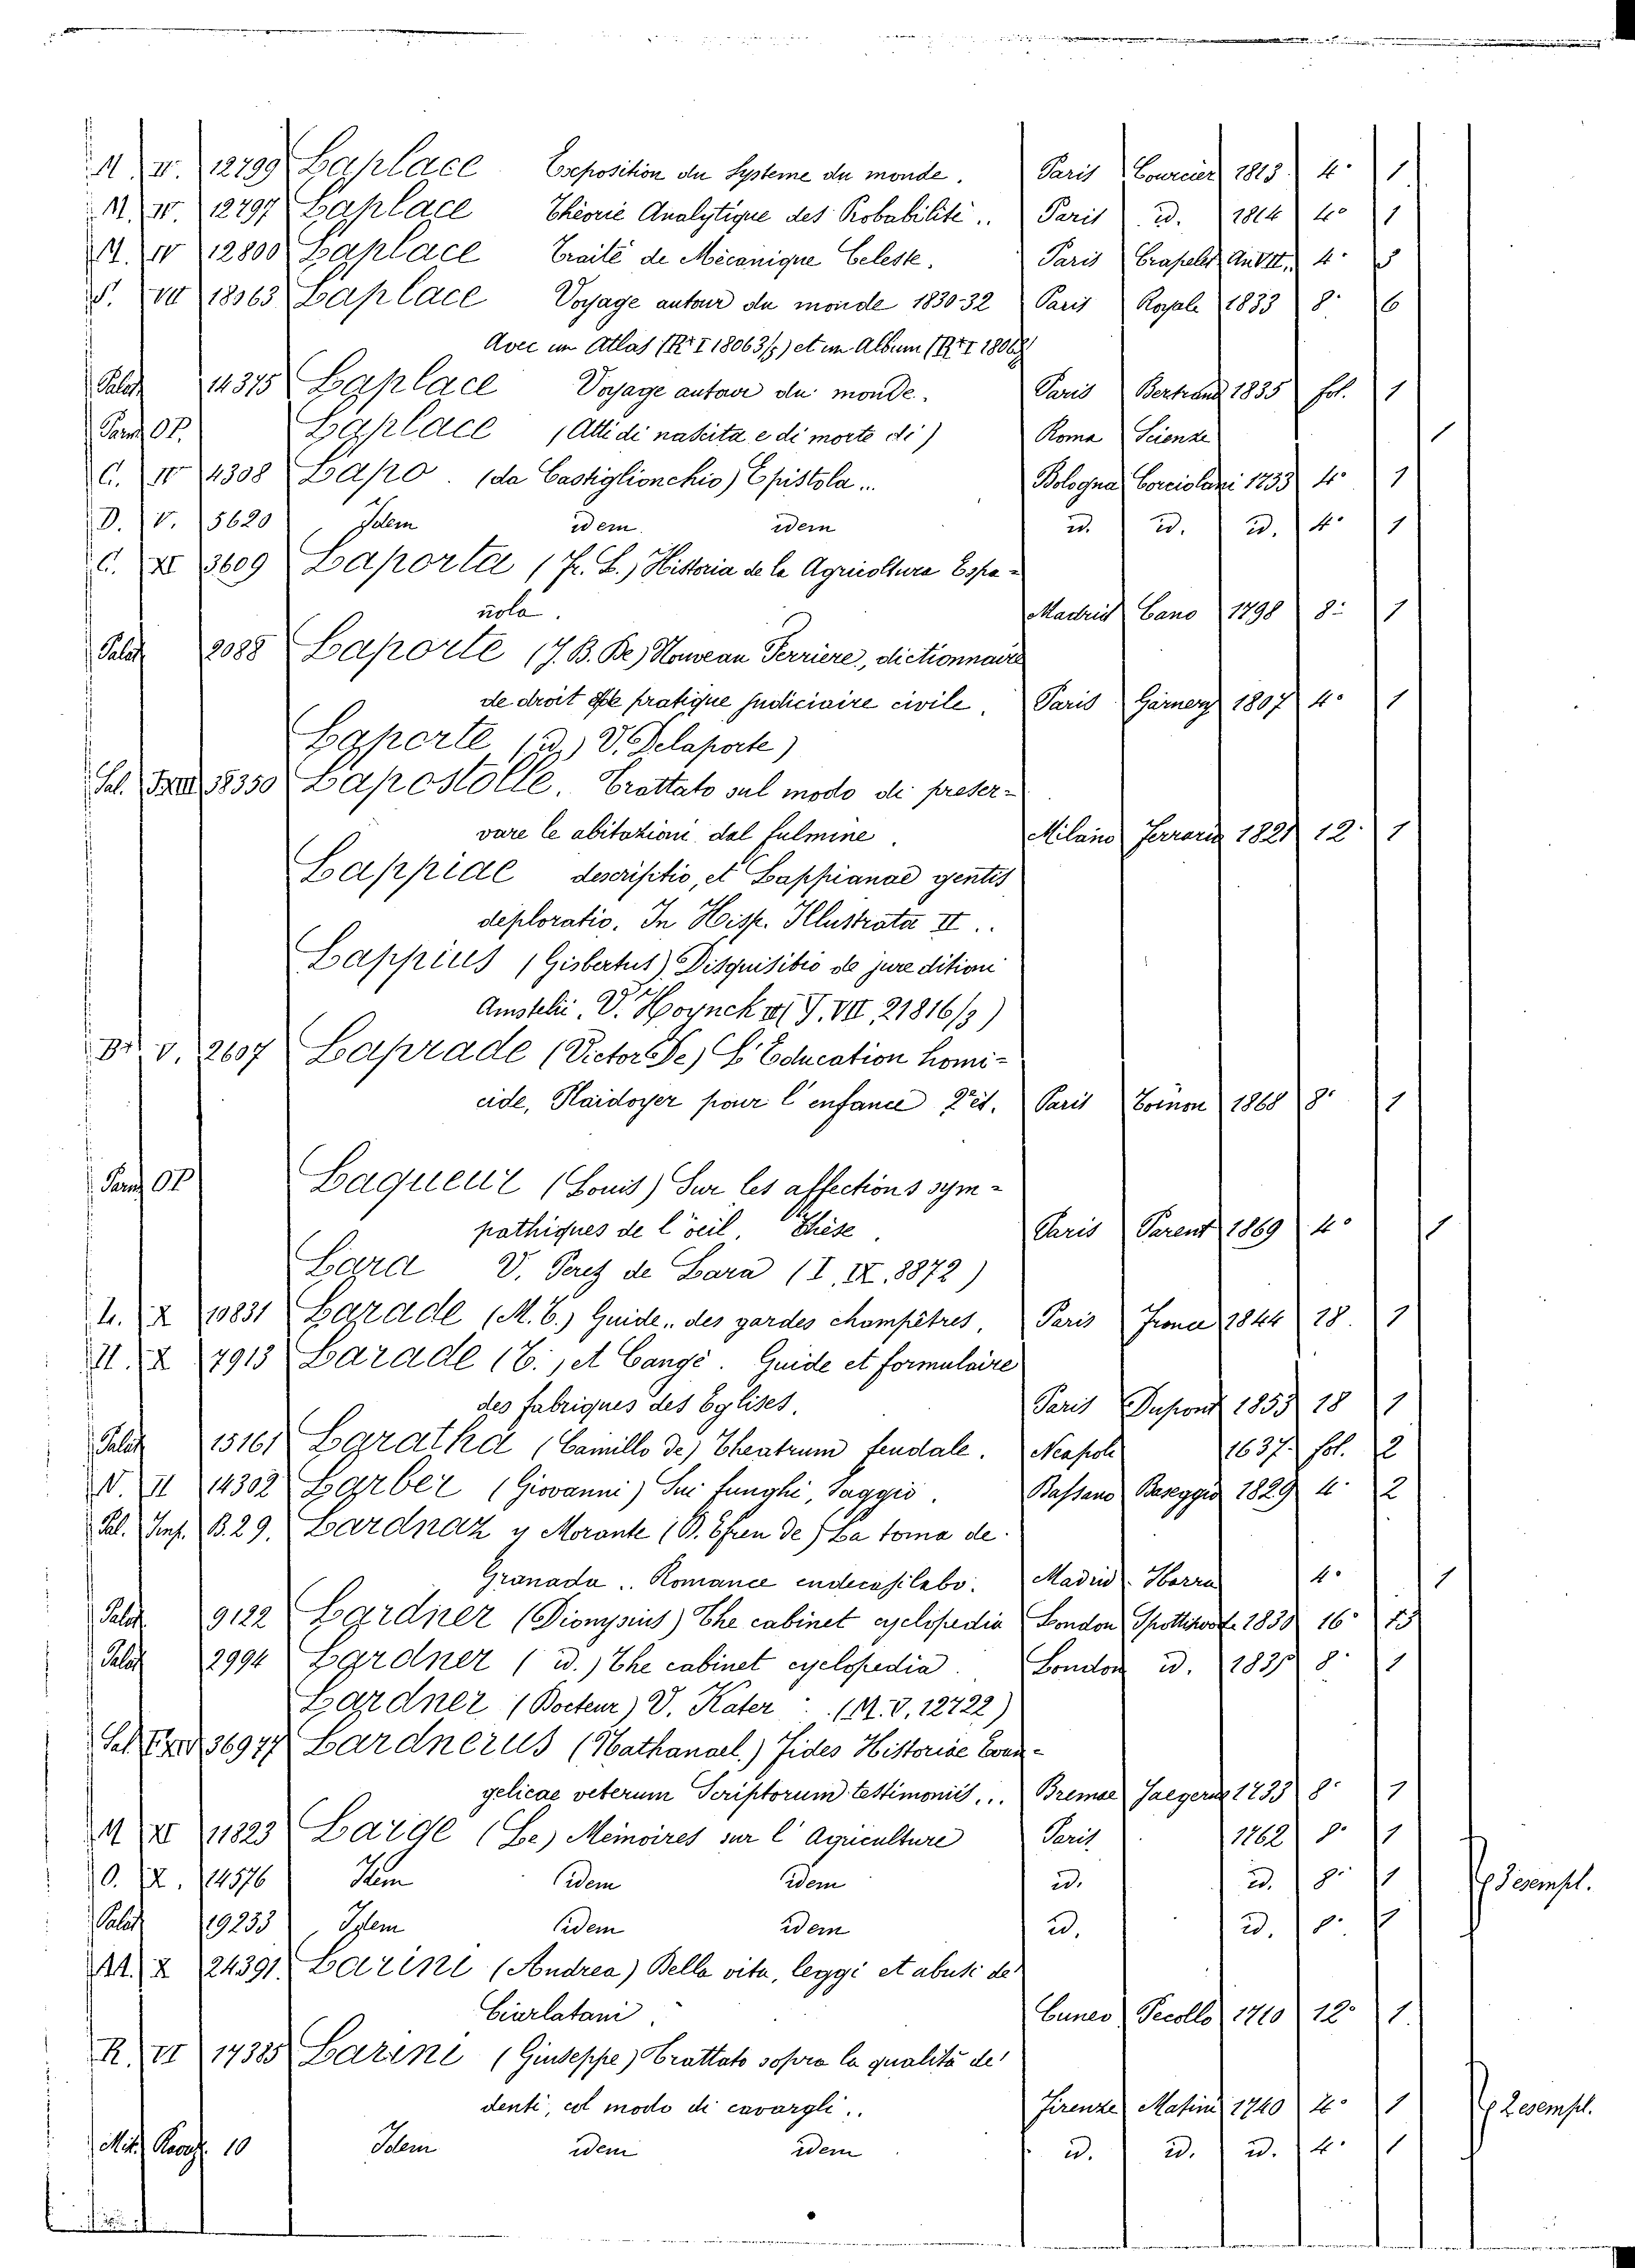 M. IV. 12799 Laplace Exposition du Systeme du monde. Paris Courcier 1813. 4° 1
M. IV. 12797 Laplace Théorie Analytique des Probabilité.. Paris id. 1814 4° 1
M. IV 12800 Laplace Traité de Mécanique Celeste. Paris Crapelet An VII. 4°
VII 18063 Laplace Voyage autour du monde 1830-32 Paris Royale 1833 8° 6
Avec un Atlas (R I 18063/) et un Album (R I 1806
Palat 14375 Laplace Voyage autour du monde. Paris Bertrand 1835 fol. 1
OP. Laplace (Atti di nascita e di morte di) Roma Scienze 1
C. IV 4308 Lapo. (da Castiglionchio) Epistola... Bologna 1753 4° 1
D. V. 5620 Idem idem idem id. id. id. 4° 1
C. XI 3609 Laporta (F. L.) Historia de la Agricoltura Espa-
ñola. Madrid Cano 1798 8° 1
Palat 2088 Laporte (J. B. De) Nouveau Ferriere, dictionnaire
de droit et de pratique judiciaire civile. Paris Garnery 1807 4° 1
Laporte (id.) V. Delaporte)
Sal. 38350 Lapostolle. Trattato sul modo di preser-
vare le abitazioni dal fulmine. Milano Ferrario 1821 12° 1
Lappiae descriptio, et Lappianae gentis
deploratio. In Hisp. Illustrata II..
Lappius (Gisbertus) Disquisitio de jure dition
Amstelii. V. Hoynck (T. VII, 21816/3)
V. 2607 Laprade (Victor De) L'Education homi-
cide, Plaidoyer pour l'enfance 2e éd. Paris 1868 8° 1
OP Laqueur (Louis) Sur les affections sym-
pathiques de l'oeil, Thèse. Paris Parent 1869 4° 1
Lara V. Perez de Lara (I, IX, 8872)
X 10831 Larade (M. E.) Guide.. des gardes champêtres, Paris 1844 18. 1
II. X 7913 Larade (E., et Cangé. Guide et formulaire
des fabriques des Eglises. Paris Dupont 1853 18 1
Palat 15161 Laratha (Camillo de) Theatrum feudale. Neapoli 1637. fol. 2
N. II 14302 Larber (Giovanni) Sui funghi, Saggio. Bassano Baseggio 1829 4° 2
Pal. B.29. Lardnaz y Morante (D. Efren de) La toma de
Granada.. Romance endecasilabo. Madrid. Ibarra 4° 1
Palat 9122 Lardner (Dionysius) The cabinet cyclopedia London 1830 16°
Palat 2994 Lardner (id.) The cabinet cyclopedia. London id. 8° 1
Lardner (Docteur) V. Kater.. (M. V. 12722)
Sal. 36977 Lardnerus (Nathanael.) Fides Historiae Evan-
gelicae veterum Scriptorum testimoniis,.. Bremae Jaegerus 1733 8° 1
M XI 11823 Large (Le) Memoires sur l'Agriculture Paris 1762 8° 1
O. X. 14576 Idem idem idem id. id. 8° 1 esempl.
Palat 19233 Idem idem idem id. id. 8°
M. X 24391 Larini (Andrea) Della vita, leggi et abusi de'
Ciarlatani. Cuneo Pecollo 1710 12° 1.
R. VI 17385 Larini (Giuseppe) Trattato sopra la qualità de'
denti, col modo di cavargli.. Firenze Masini 1740 4° 1 2 esempl.
10 Idem idem idem id. id. id. 4° 1